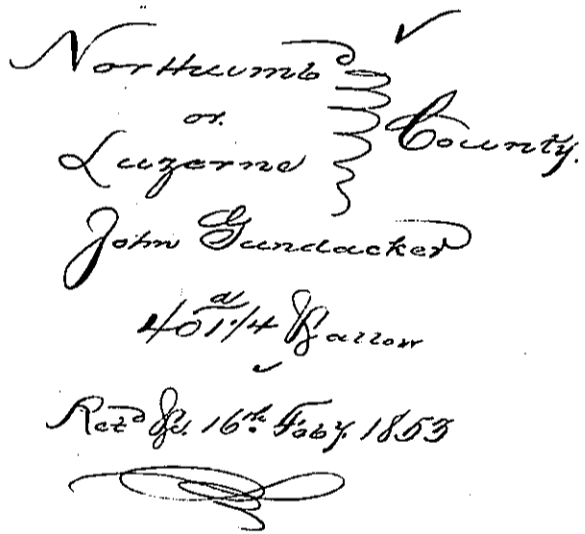 Northumbd
or
Luzerne
County.
John Gundacker
401 a 1/4 Barron
Retd 16th Feby. 1853